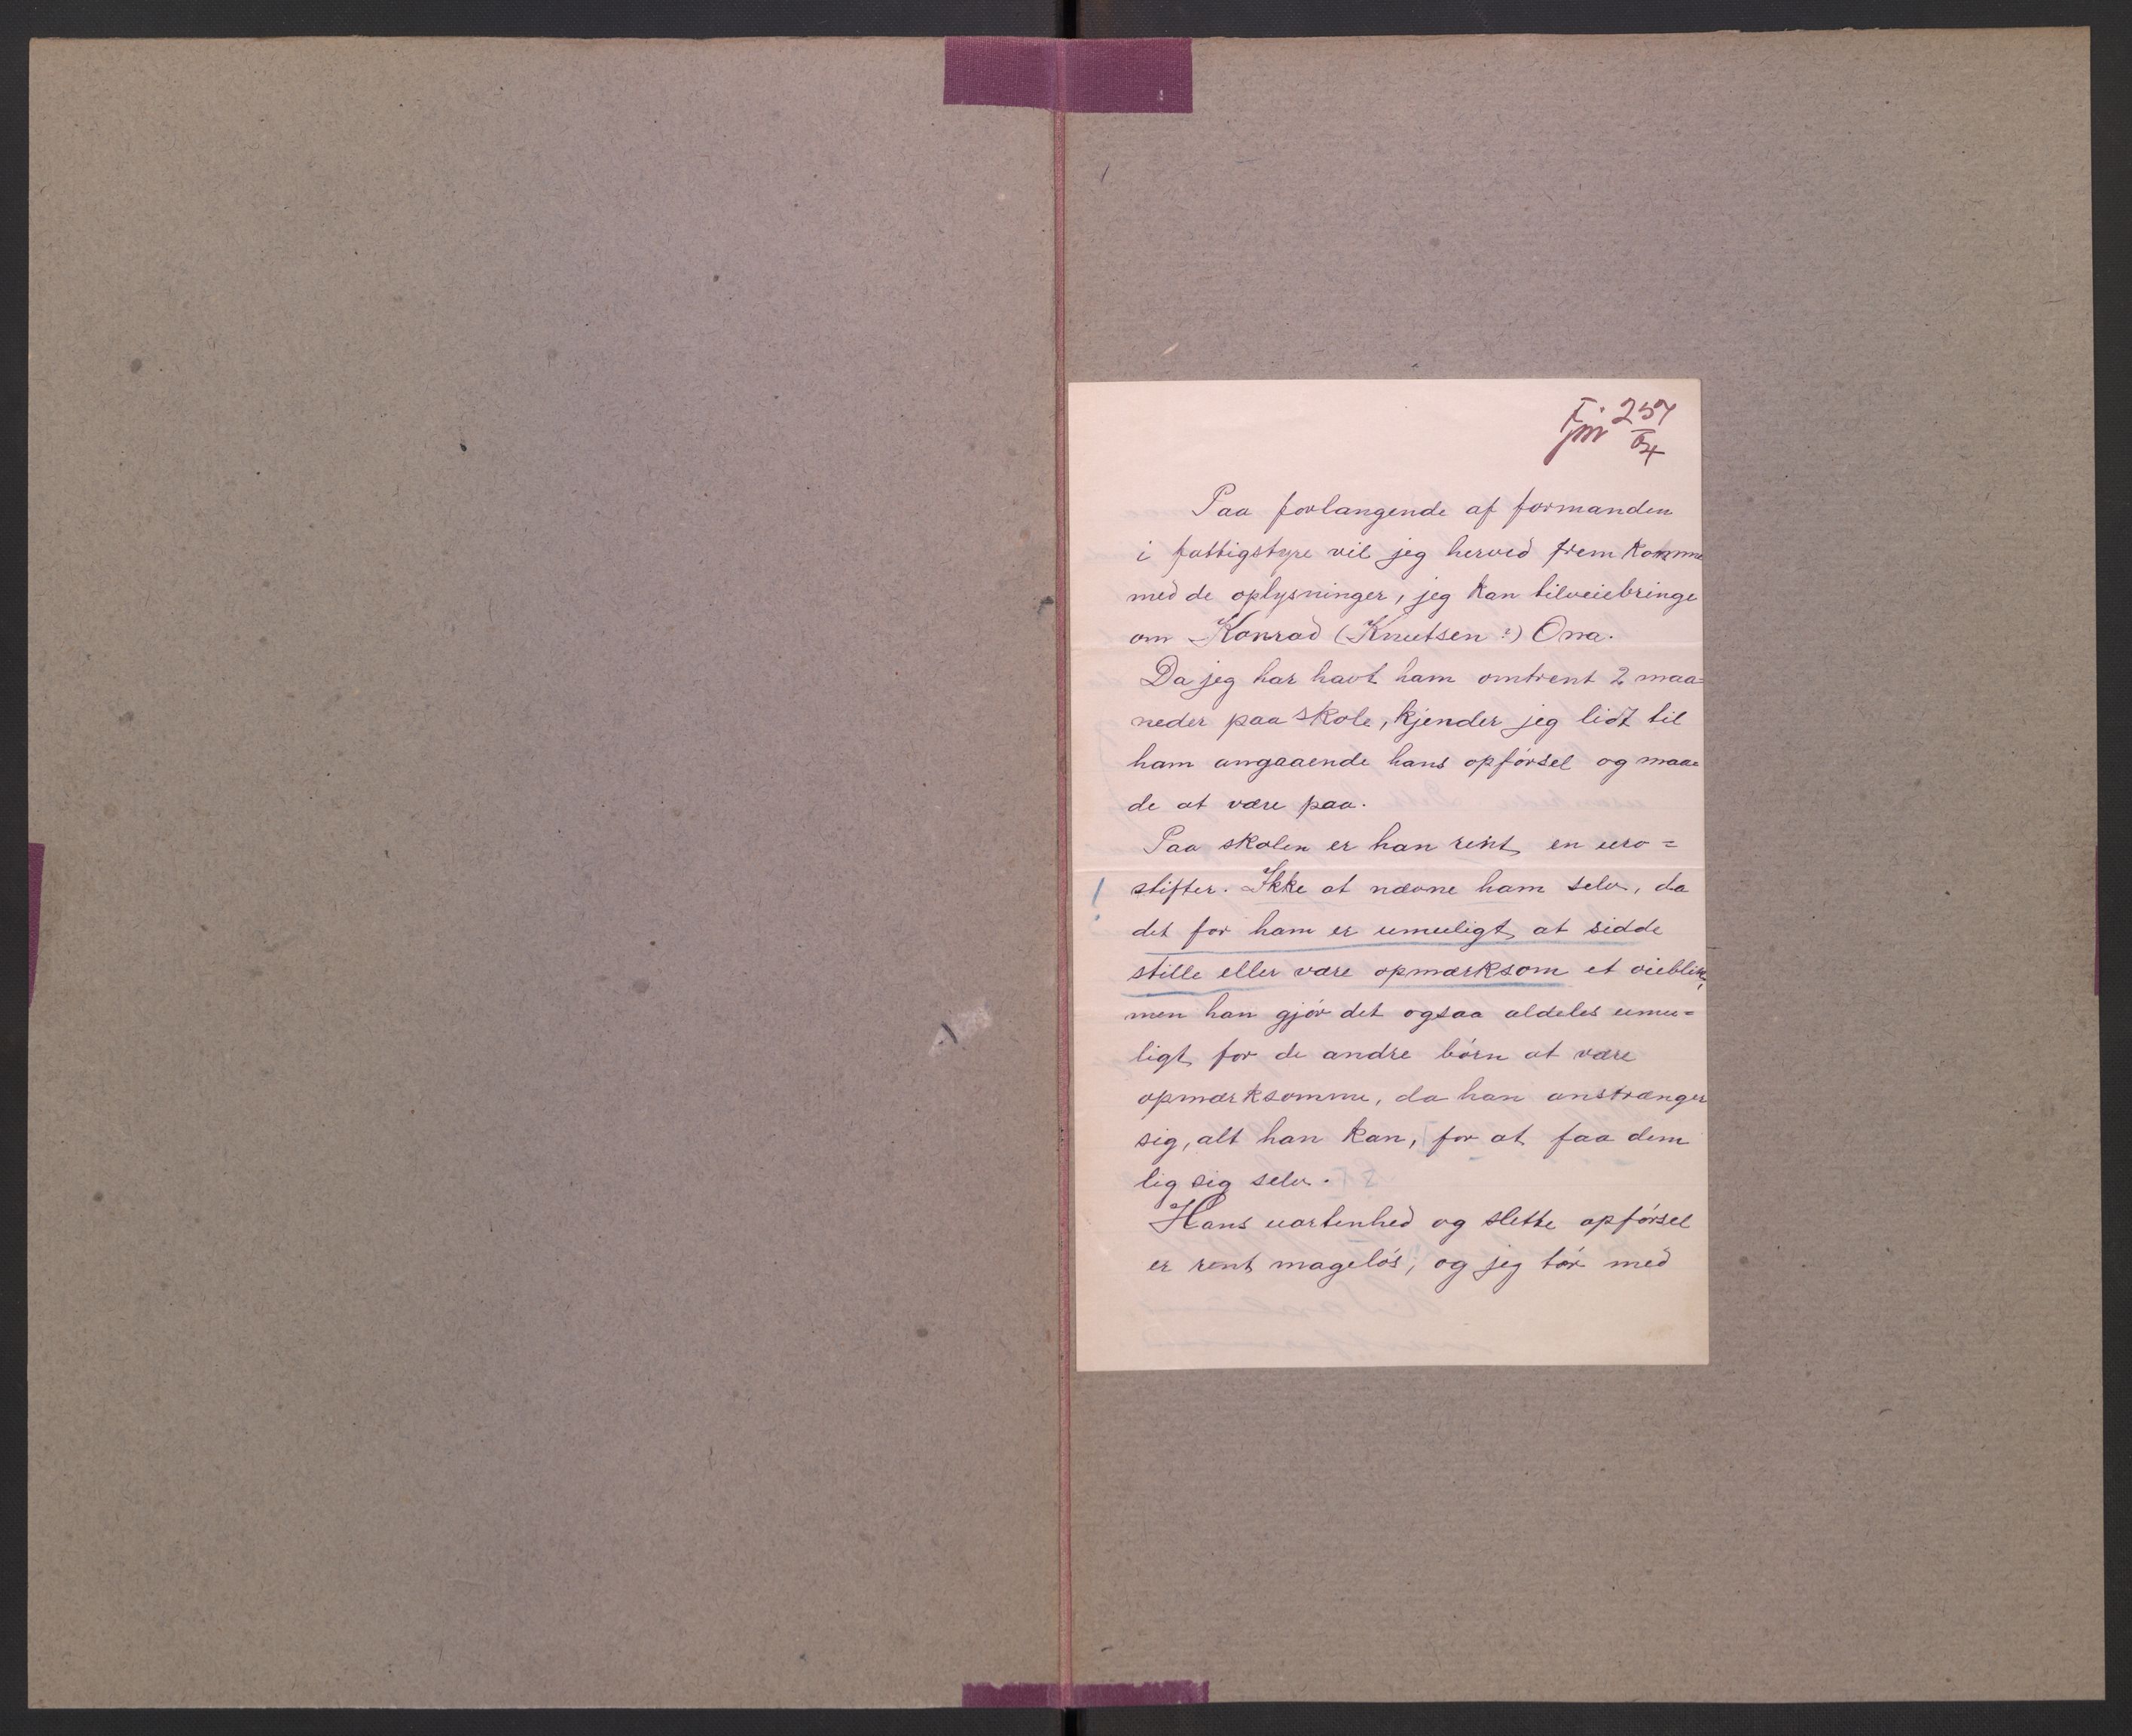 257
04
Paa forlangende af formanden
i fattigstyre vil jeg herved fremkomme
med de oplysninger, jeg kan tilveiebringe
om Konrad (Knutsen?) Ona.
Da jeg har havt ham omtrent 2 maa=
neder paa skole, kjender jeg lidt til
ham angaaende hans opførsel og maa=
de at være paa.
Paa skolen er han rent en uro=
! stifter. Ikke at nævne ham selv, da
det for ham er umuligt at sidde
stille eller være opmærksom et øieblik,
men han gjør det ogsaa aldeles umu=
ligt for de andre børn at være
opmærksomme, da han anstrænger
sig, alt han kan, for at faa dem
lig sig selv.
Hans uartenhed og slette opførsel
er rent mageløs; og jeg tør med